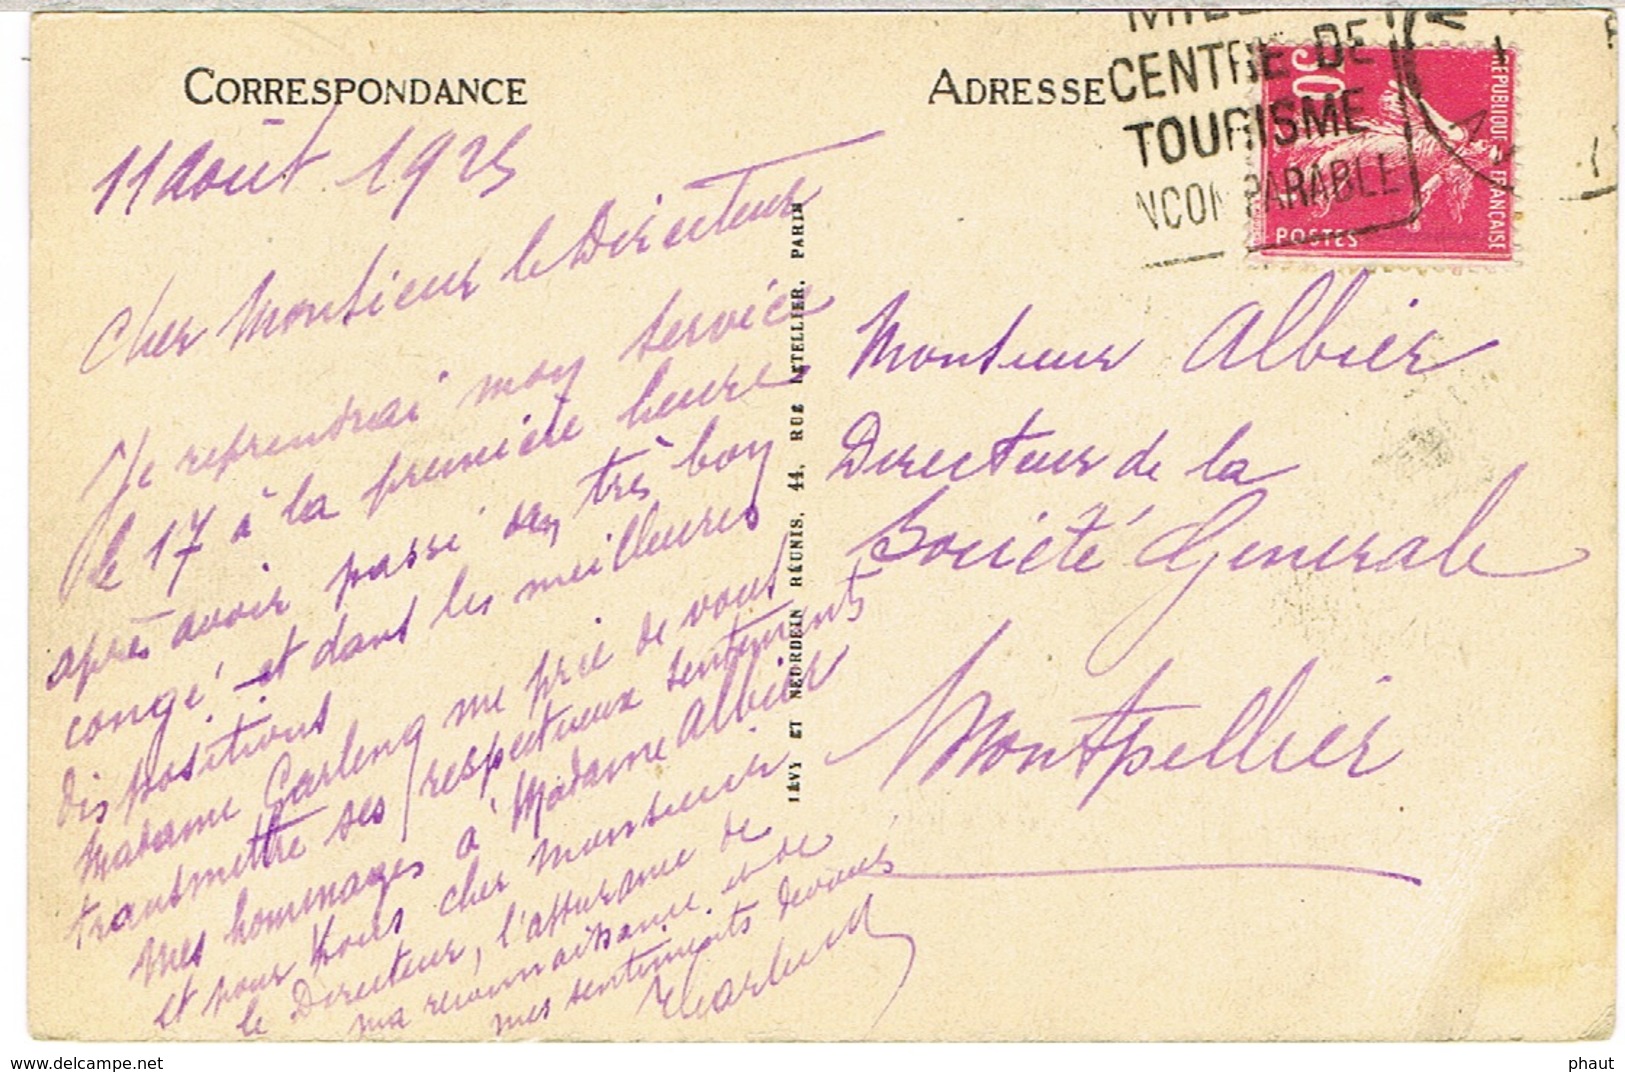 CORRESPONDANCE
11 août 1925
Cher Monsieur le Directeur
Je reprendrai mon service
le 17 à la première heure
après avoir passé un très bon
congé et dans les meilleures
dispositions
Madame me prie de vous
transmettre ses respectueux sentiments
mes hommages à Madame Albier
et pour vous cher monsieur
le Directeur, l'assurance de
ma reconnaissance et de
mes sentiments dévoués
LÉVY ET NEURDEIN RÉUNIS, 44, RUE LETELLIER, PARIS
ADRESSE
CENTRE DE
TOURISME
INCOMPARABLE
30
REPUBLIQUE FRANÇAISE
POSTES
Monsieur Albier
Directeur de la
Société Generale
Montpellier
phaut